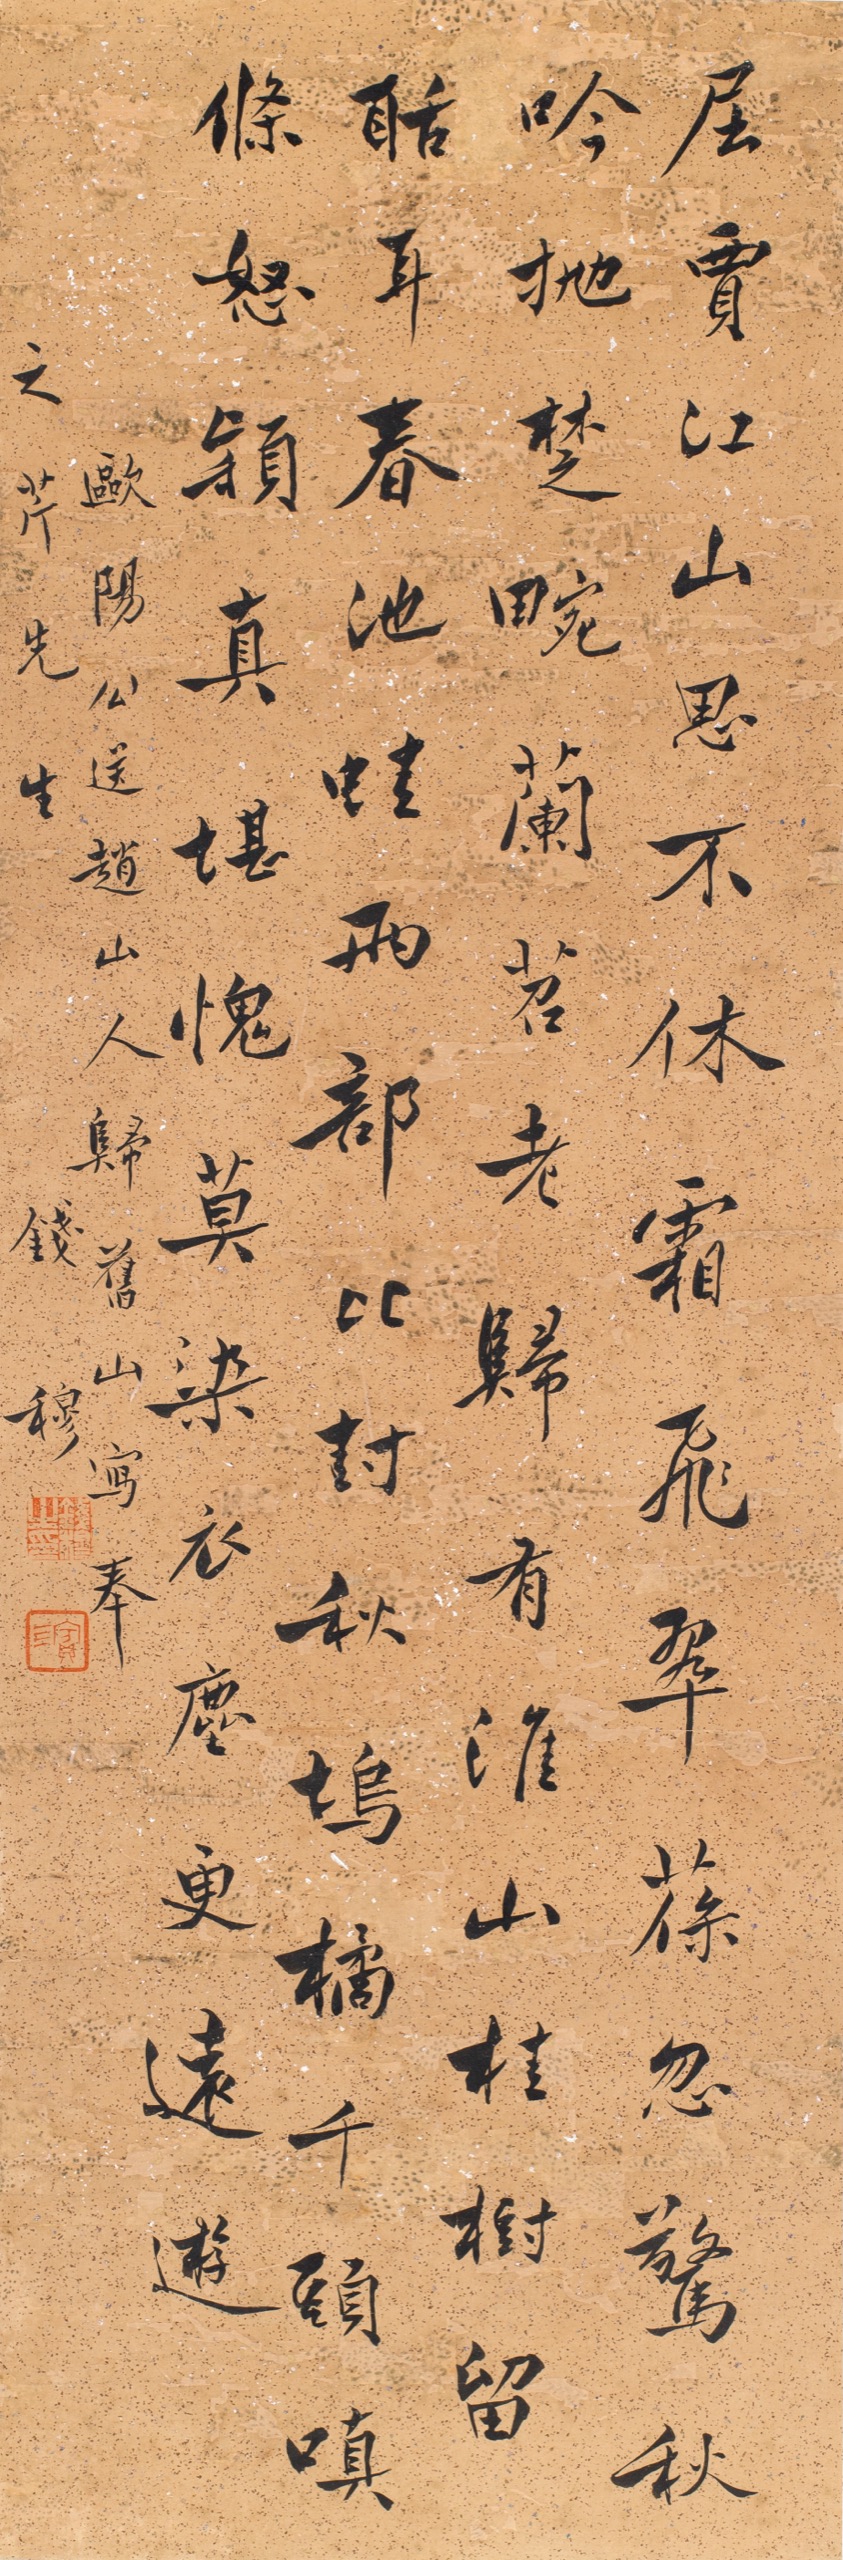 屈賈江山思不休霜飛翠葆忽驚秋
吟抛楚畹蘭苕老歸有淮山桂樹留
聒耳春池蛙兩部比封秋塢橘千頭嗔
條怒穎真堪愧莫染衣塵更遠遊
歐陽公送趙山人歸舊山寫奉
之芹先生 錢穆